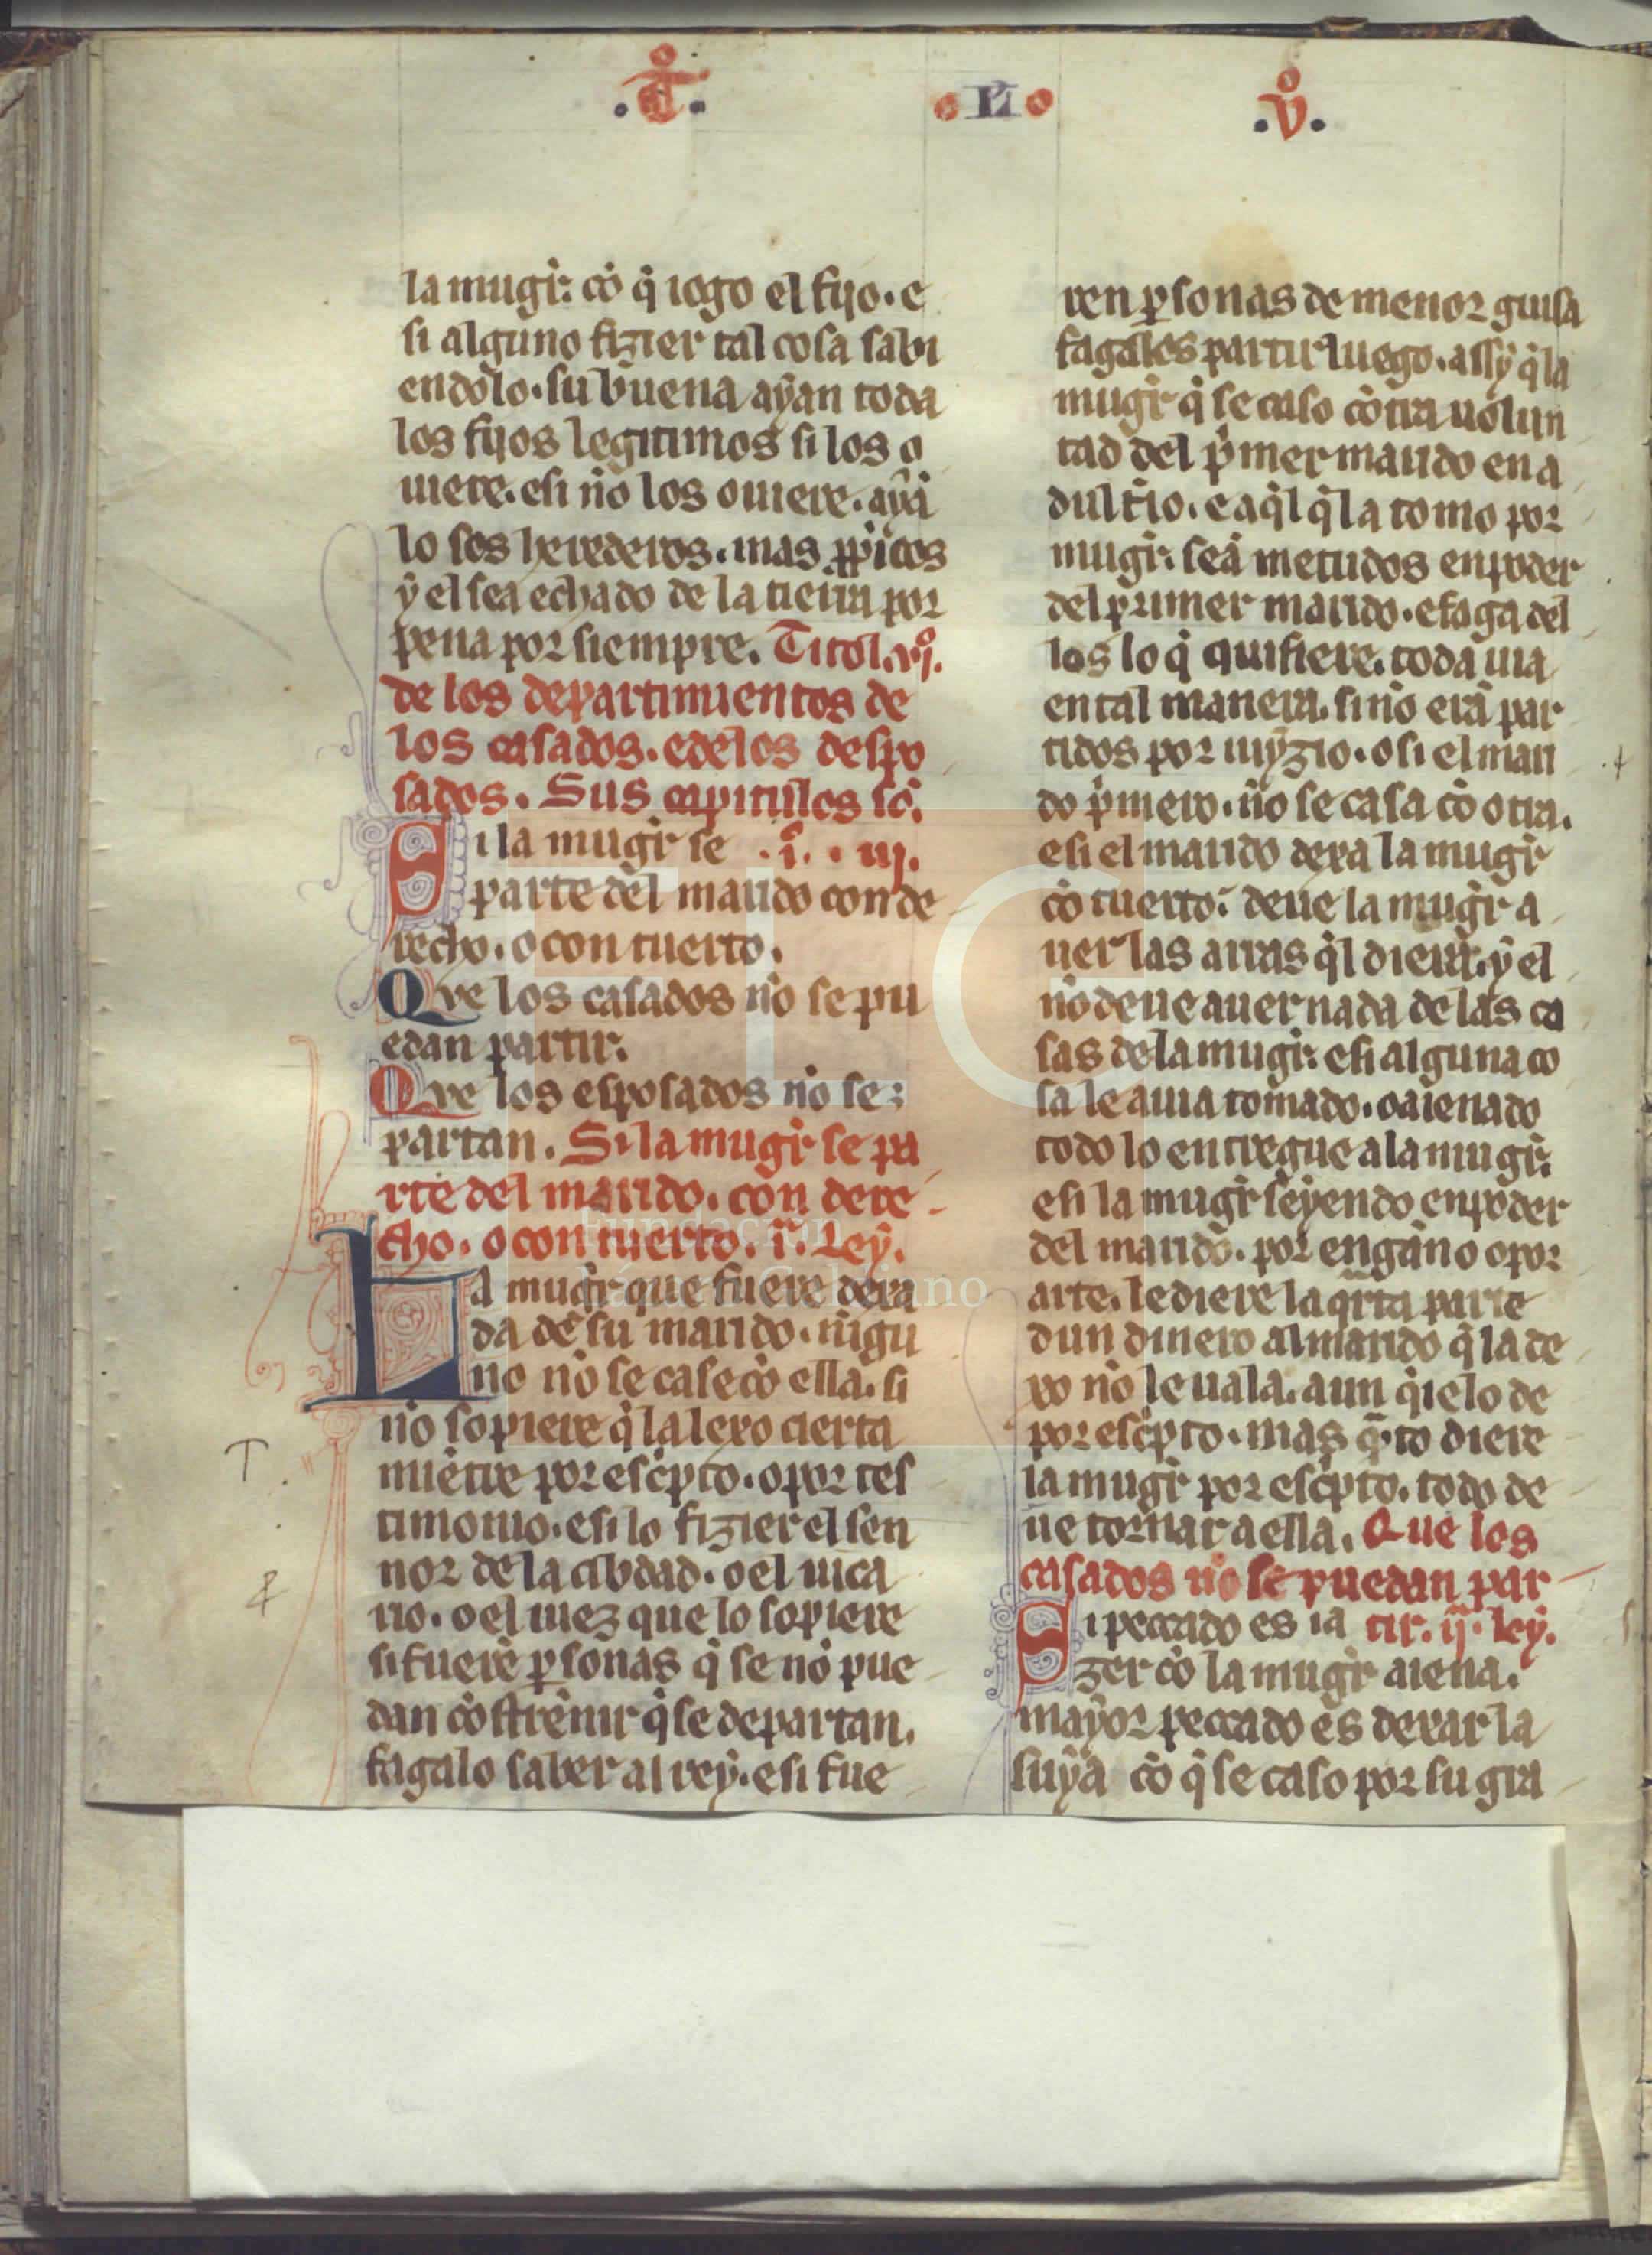 .T̊. .LI. .v̊.
la mugr̃: cõ q̃ iogo el fijo. e
si alguno fizier tal cosa sabi
endolo. su buena ayan toda
los fijos legitimos si los o
uiere. esi nõ los ouiere. ayã
lo sos herederos. mas
y el sea echado de la tierra por
pena por siempre. Titol. vj̊.
de los departimientos de
los casados. edelos despo
sados. Sus capitulos sõ.
Si la mugr̃ se .i̊. . iij.
parte del marido con de
recho. o con tuerto.
Que los casados nõ se pu
edan partir.
Que los esposados nõ se:
partan. Si la mugr̃ se pa
rte del marido. con dere
cho. o con tuerto. i̊. Ley.
La mugr̃ que fuere dexa
da de su marido. nīgu
no nõ se case cõ ella. si
nõ sopiere q̃ la lexo cierta
miẽtre por esc̃pto. o por tes
timonio. esi lo fizier el sen
nor de la cibdad. o el uica
rio. o el iuez que lo sopiere
si fuerẽ ꝑsonas q̃ se nõ pue
dan cõstrẽnir q̃ se departan.
fagalo saber al rey. esi fue
ren ꝑsonas de menor guisa
fagales partir luego. assy q̃ la
mugr̃ q̃ se caso cõtra uolun
tad del p̃mer marido en a
dult̃io. e aq̃l q̃ la tomo por
mugr̃: seã metudos en poder
del primer marido. e faga del
los lo q̃ quisiere. toda uia
en tal manera. si nõ erã par
tidos por iuyzio. o si el mari
do p̃mero. nõ se casa cõ otra.
esi el marido dexa la mugr̃
cõ tuerto: deue la mugr̃ a
uer las arras q̃l dierẽ. y el
nõ deue auer nada de las co
sas de la mugr̃: esi alguna co
sa le auia tomado. o aienado
todo lo entregue a la mugr̃:
esi la mugr̃ seyendo en poder
del marido. por engãno o por
arte. le dierẽ la q̃rta parte
dun dinero al marido q̃ la de
xo nõ le uala. aun q̃ ielo de
por esc̃pto. mas q̃to diere
la mugr̃ por esc̃pto. todo de
ue tornar a ella. Que los
casados nõ se puedan par
Si peccado es ia tir. ij̊. ley.
zer cõ la mugr̃ aiena.
mayor peccado es dexar la
suya cõ q̃ se caso por su gra